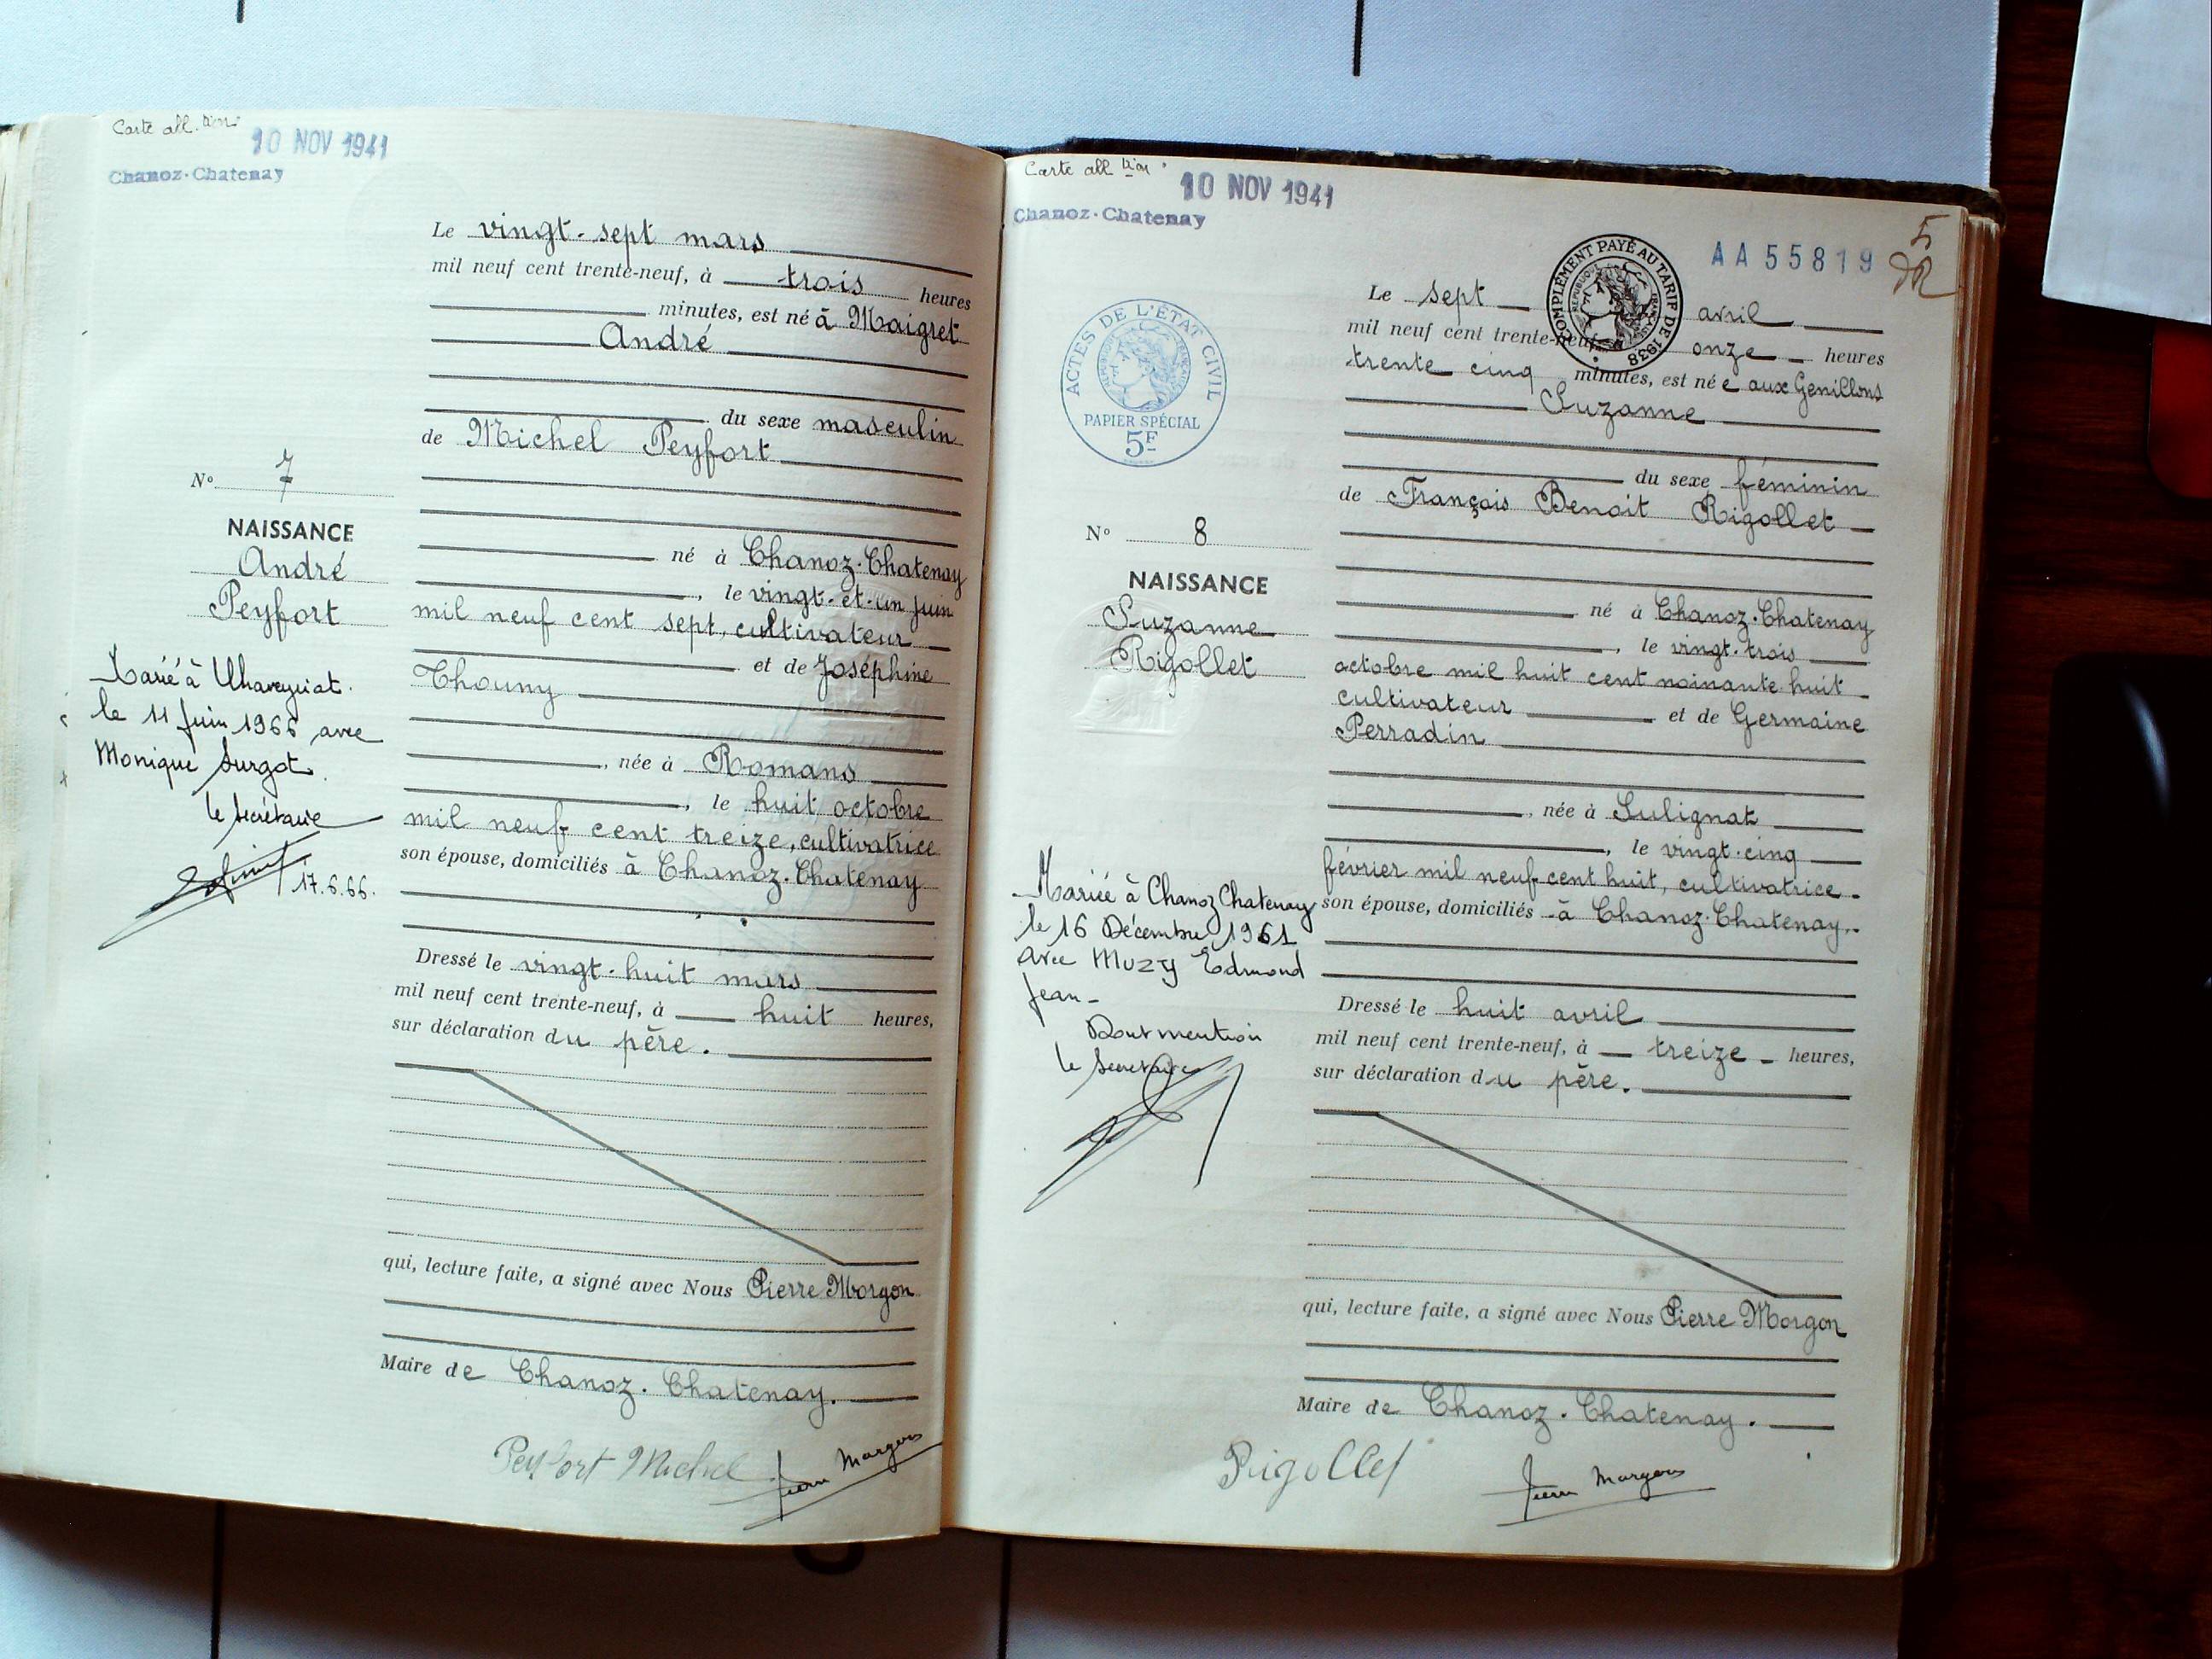 Carte all.
10 NOV 1941
Chanoz-Chatenay
Le vingt-sept mars
mil neuf cent trente-neuf, à trois heures
minutes, est né à Maigret
André
du sexe masculin
de Michel Peyfort
né à Chanoz-Chatenay
, le vingt-et-un juin
mil neuf cent sept, cultivateur
et de Joséphine
Thouny
, née à Romans
, le huit octobre
mil neuf cent treize, cultivatrice
son épouse, domiciliés à Chanoz-Chatenay
Dressé le vingt-huit mars
mil neuf cent trente-neuf, à huit heures,
sur déclaration du père.
qui, lecture faite, a signé avec Nous Pierre Morgon
Maire de Chanoz-Chatenay.
Peyfort Michel
Pierre Morgon
N° 7
NAISSANCE
André
Peyfort
Marié à
le 11 Juin 1966 avec
Monique Surgot.
le secrétaire
17.6.66.
Carte all
10 NOV 1941
Chanoz-Chatenay
AA 55819
5
COMPLÉMENT PAYÉ AU TARIF DE 1938
Le sept avril
mil neuf cent trente-neuf, onze heures
trente cinq minutes, est née aux Genillons
Suzanne
du sexe féminin
de François Benoit Rigollet
né à Chanoz-Chatenay
, le vingt-trois
octobre mil huit cent noinante huit
cultivateur et de Germaine
Perradin
, née à Sulignat
, le vingt-cinq
février mil neuf cent huit, cultivatrice
son épouse, domiciliés à Chanoz-Chatenay.
Dressé le huit avril
mil neuf cent trente-neuf, à treize heures,
sur déclaration du père.
qui, lecture faite, a signé avec Nous Pierre Morgon
Maire de Chanoz-Chatenay.
Rigollet
Pierre Morgon
ACTES DE L'ÉTAT CIVIL
RÉPUBLIQUE FRANÇAISE
PAPIER SPÉCIAL
5F
N° 8
NAISSANCE
Suzanne
Rigollet
Mariée à Chanoz Chatenay
le 16 Décembre 1961
avec Muzy Edmond
Jean-
Dont mention
le Secrétaire